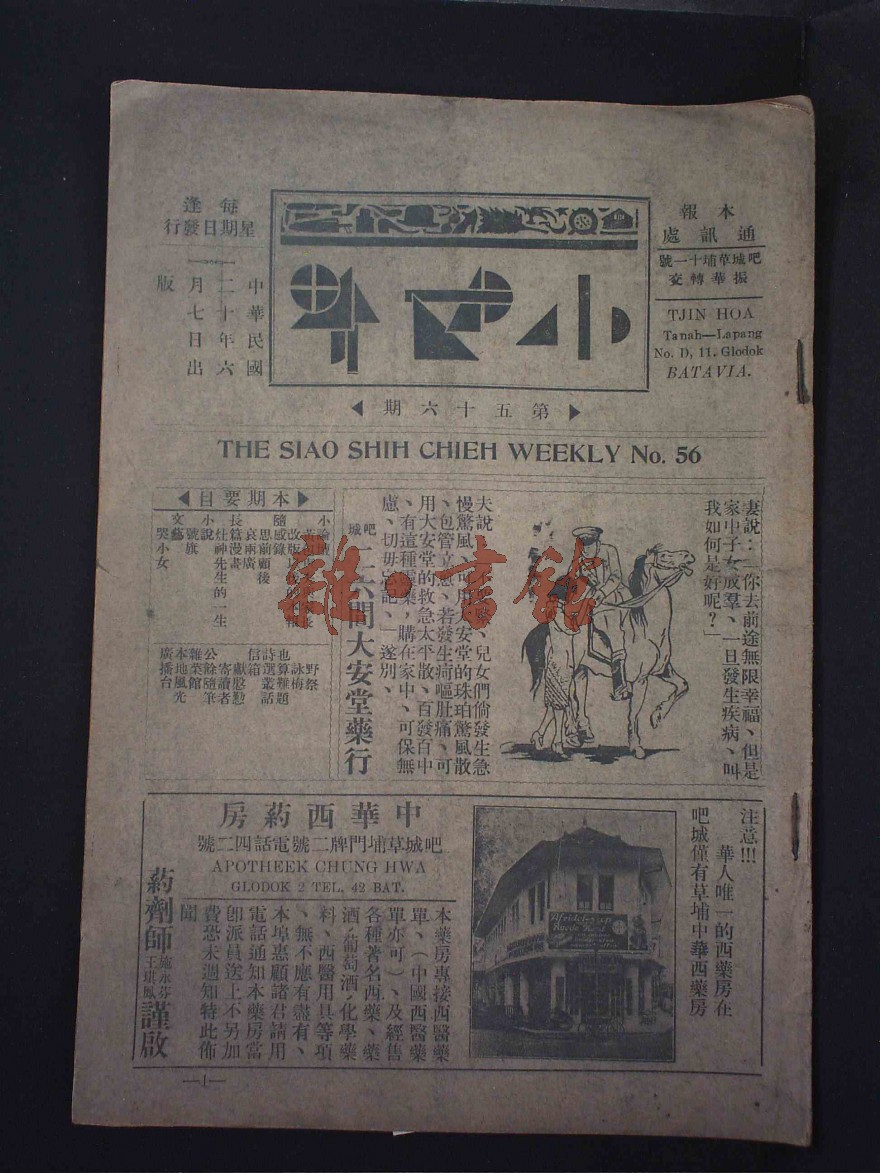 本報
通訊處
吧城草埔十一號
振華轉交
TJIN HOA
Tanah—Lapang
No. D, 11. Glodok
BATAVIA.
小世界
每逢
星期日發行
中華民國
二十年六
月七日出
版
第五十六期
THE SIAO SHIH CHIEH WEEKLY No. 56
妻說：「你去前途無限幸福、但是
家中子女成羣、一旦發生疾病、叫
我如何是好呢？」
夫說：
兒女們偷發生急
慢驚風、可用大安堂的珠珀驚風散
、包管立愈、若發生疴嘔肚痛、可
用大安堂的救急太平散、百發百中
、有這種靈藥，購在家中、可保無
慮、切毋忘記、」遂別、
吧城
大安堂藥行
本期要目
小論壇
隨感錄
思前顧後
哀兩廣
長篇漫畫
小說
灶神先生的一生
號旗
文藝
哭小女
野祭
詠梅
也算難題
詩選叢話
信箱
獻慇懃
寄讀者
公餘隨筆
雜菜館
本地風光
廣播台
注意!!!
華人唯一的西藥房在
吧城僅有草埔中華西藥房
中華西葯房
吧城草埔門牌二號電話四二號
APOTHEEK CHUNG HWA
GLODOK 2 TEL. 42 BAT.
本藥房專接西醫藥
單、（中國西醫藥
單亦可）、及經售
各種著名西藥、藥
酒，葡萄酒，化學藥
料、西醫用具等項
、無不應有盡有、
本埠惠顧諸君請用
電話通知本藥房當
卽派員送上不另加
費恐未週知特此佈
聞
葯劑師
施永芬
王琪鳳
謹啟
—1—
雜·書館